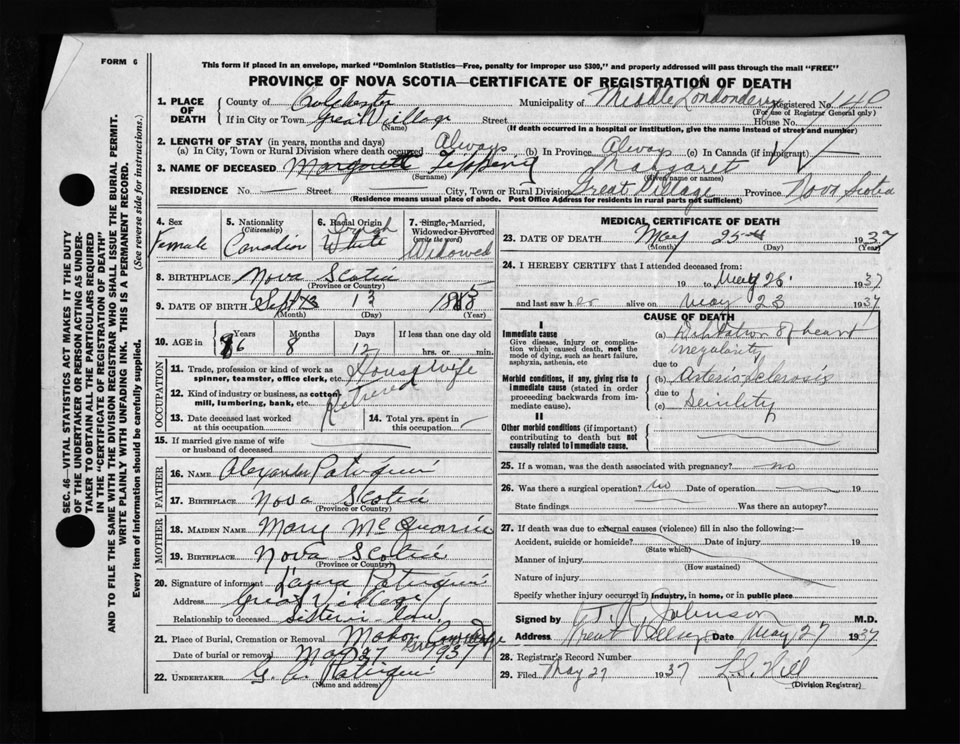 FORM 6
This form if placed in an envelope, marked "Dominion Statistics—Free, penalty for improper use $300," and properly addressed will pass through the mail "FREE"
PROVINCE OF NOVA SCOTIA—CERTIFICATE OF REGISTRATION OF DEATH
SEC. 46—VITAL STATISTICS ACT MAKES IT THE DUTY
OF THE UNDERTAKER OR PERSON ACTING AS UNDER-
TAKER TO OBTAIN ALL THE PARTICULARS REQUIRED
IN THE "CERTIFICATE OF REGISTRATION OF DEATH"
AND TO FILE THE SAME WITH THE DIVISION REGISTRAR WHO SHALL ISSUE THE BURIAL PERMIT.
WRITE PLAINLY WITH UNFADING INK. THIS IS A PERMANENT RECORD.
Every item of information should be carefully supplied. (See reverse side for instructions.)
1. PLACE OF DEATH
County of Colchester Municipality of Middle Londonderry Registered No. 140
(For use of Registrar General only)
If in City or Town Great Village Street House No.
(Name) (If death occurred in a hospital or institution, give the name instead of street and number)
2. LENGTH OF STAY (in years, months and days)
(a) In City, Town or Rural Division where death occurred Always (b) In Province Always (c) In Canada (if immigrant)
3. NAME OF DECEASED Margaret
(Surname) (Given name or names)
RESIDENCE No. — Street — City, Town or Rural Division Great Village Province Nova Scotia
(Residence means usual place of abode. Post Office Address for residents in rural parts not sufficient)
4. Sex Female
5. Nationality (Citizenship) Canadian
6. Racial Origin White
7. Single, Married, Widowed or Divorced (write the word) Widowed
8. BIRTHPLACE Nova Scotia
(Province or Country)
9. DATE OF BIRTH Sept 13
(Month) (Day) (Year)
10. AGE in Years Months Days If less than one day old
8 12 hrs. or min.
OCCUPATION
11. Trade, profession or kind of work as spinner, teamster, office clerk, etc. Housewife
12. Kind of industry or business, as cotton mill, lumbering, bank, etc. Retired
13. Date deceased last worked at this occupation
14. Total yrs. spent in this occupation —
15. If married give name of wife or husband of deceased
FATHER
16. NAME Alexander Patriquin
17. BIRTHPLACE Nova Scotia
(Province or Country)
MOTHER
18. MAIDEN NAME Mary McQuarrie
19. BIRTHPLACE Nova Scotia
(Province or Country)
20. Signature of informant Laura Patriquin
Address Great Village
Relationship to deceased Sister in law
21. Place of Burial, Cremation or Removal Mahon Cemetery
Date of burial or removal May 27 1937
22. UNDERTAKER Patriquin
(Name and address)
MEDICAL CERTIFICATE OF DEATH
23. DATE OF DEATH May 25th 1937
(Month) (Day) (Year)
24. I HEREBY CERTIFY that I attended deceased from:
19 to May 1937
and last saw her alive on May 23 1937
CAUSE OF DEATH
I
Immediate cause
Give disease, injury or complication which caused death, not the mode of dying, such as heart failure, asphyxia, asthenia, etc
(a) Dilatation of heart
irregularity
due to
Morbid conditions, if any, giving rise to immediate cause (stated in order proceeding backwards from immediate cause).
(b) Arteriosclerosis
due to
(c) Senility
II
Other morbid conditions (if important) contributing to death but not causally related to immediate cause.
25. If a woman, was the death associated with pregnancy? no
26. Was there a surgical operation? no Date of operation — 19
State findings Was there an autopsy?
27. If death was due to external causes (violence) fill in also the following:—
Accident, suicide or homicide? Date of injury 19
(State which)
Manner of injury
(How sustained)
Nature of injury
Specify whether injury occurred in industry, in home, or in public place
Signed by T. R. Johnson M.D.
Address Great Village Date May 27 1937
28. Registrar's Record Number
29. Filed May 27 1937 L. S. Hill
(Division Registrar)